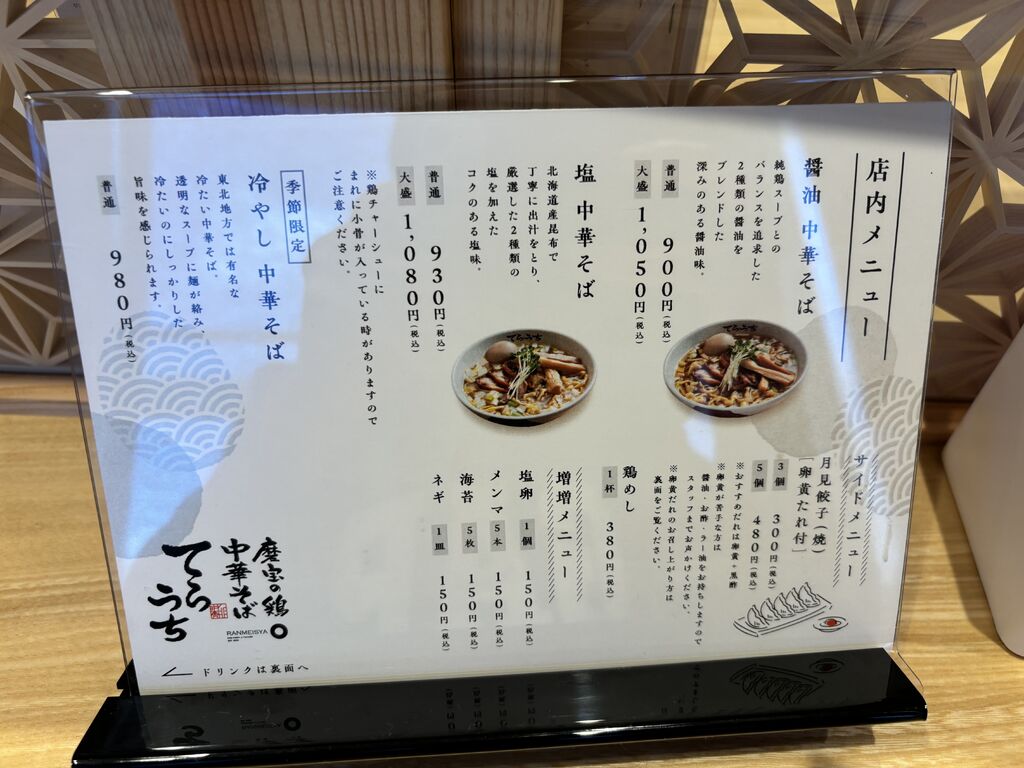 店内メニュー
醤油 中華そば
純鶏スープとの
バランスを追求した
2種類の醤油を
ブレンドした
深みのある醤油味。
普通 900円(税込)
大盛 1,050円(税込)
塩 中華そば
北海道産昆布で
丁寧に出汁をとり、
厳選した2種類の
塩を加えた
コクのある塩味。
普通 930円(税込)
大盛 1,080円(税込)
※鶏チャーシューに
まれに小骨が入っている時がありますので
ご注意ください。
季節限定
冷やし 中華そば
東北地方では有名な
冷たい中華そば。
透明なスープに麺が絡み、
冷たいのにしっかりした
旨味を感じられます。
普通 980円(税込)
てらうち
てらうち
サイドメニュー
月見餃子(焼)
[卵黄たれ付]
3個 300円(税込)
5個 480円(税込)
※おすすめだれは卵黄+黒酢
※卵黄が苦手な方は
醤油・お酢・ラー油をお持ちしますので
スタッフまでお声かけください。
※卵黄だれのお召し上がり方は
裏面をご覧ください。
鶏めし
1杯 380円(税込)
増増メニュー
塩卵 1個 150円(税込)
メンマ 5本 150円(税込)
海苔 5枚 150円(税込)
ネギ 1皿 150円(税込)
鶏。
中華そば
てらうち
RANMEISYA
ドリンクは裏面へ